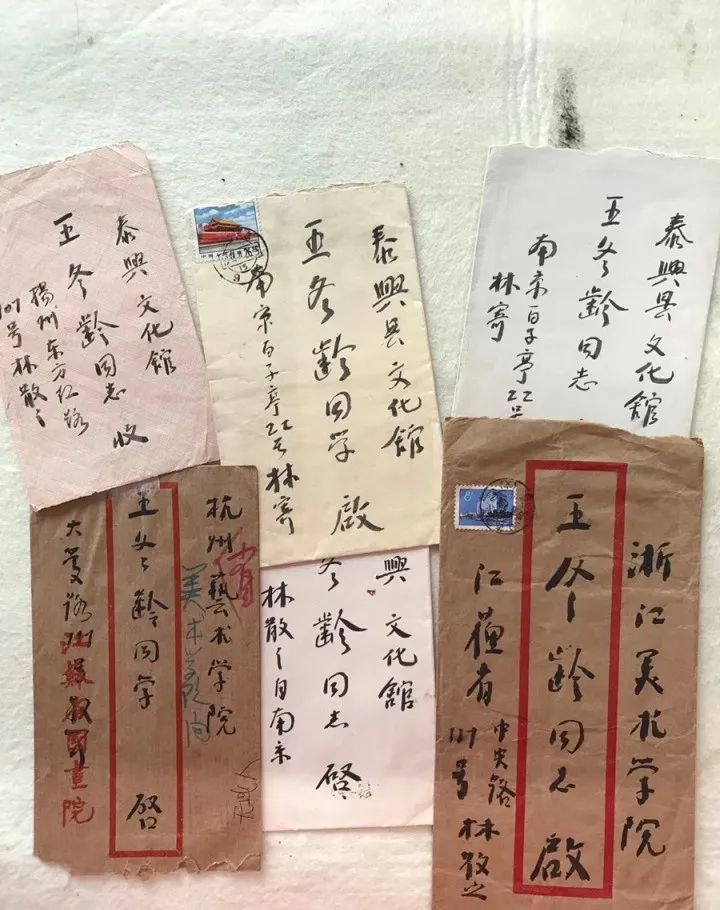 泰興文化館
王冬齡同志 收
揚州东方红路
107号林散〻
泰興县文化館
王冬齡同学 啟
南京百子亭22号林寄
泰興县文化館
王冬齡同志
南京百子亭22号
林寄
杭州藝术学院
美术学院
王冬齡同学 啓
江蘇省國畫院
興文化館
冬齡同志 啓
林散〻自南京
浙江美术学院
王冬齡同志 啟
江蘇省
中央路
117号 林散之
8